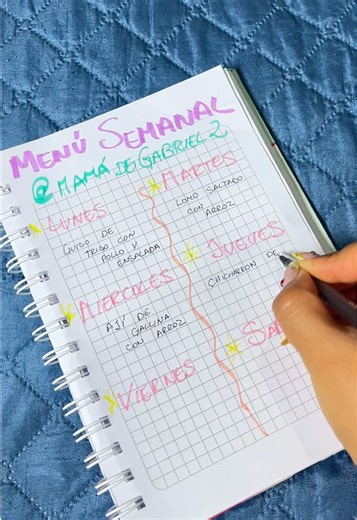 MENÚ SEMANAL
@MAMÁ DE GABRIEL 2
LUNES
GUISO DE
TRIGO CON
POLLO Y
ENSALADA
MARTES
LOMO SALTADO
CON
ARROZ
MIERCOLES
AJY DE
GALLINA
CON ARROZ
JUEVES
CHICHARRON DE
VIERNES